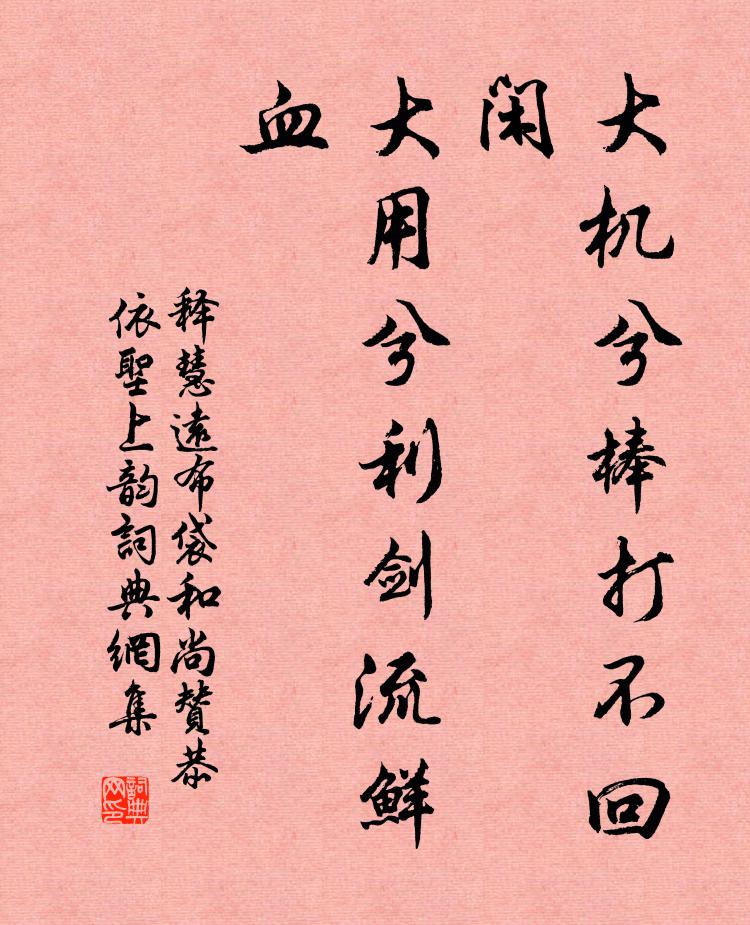 大机兮棒打不回
闲
大用兮利剑流鲜
血
释慧遠布袋和尚贊恭
依聖上韵詞典網集
詞典
网印